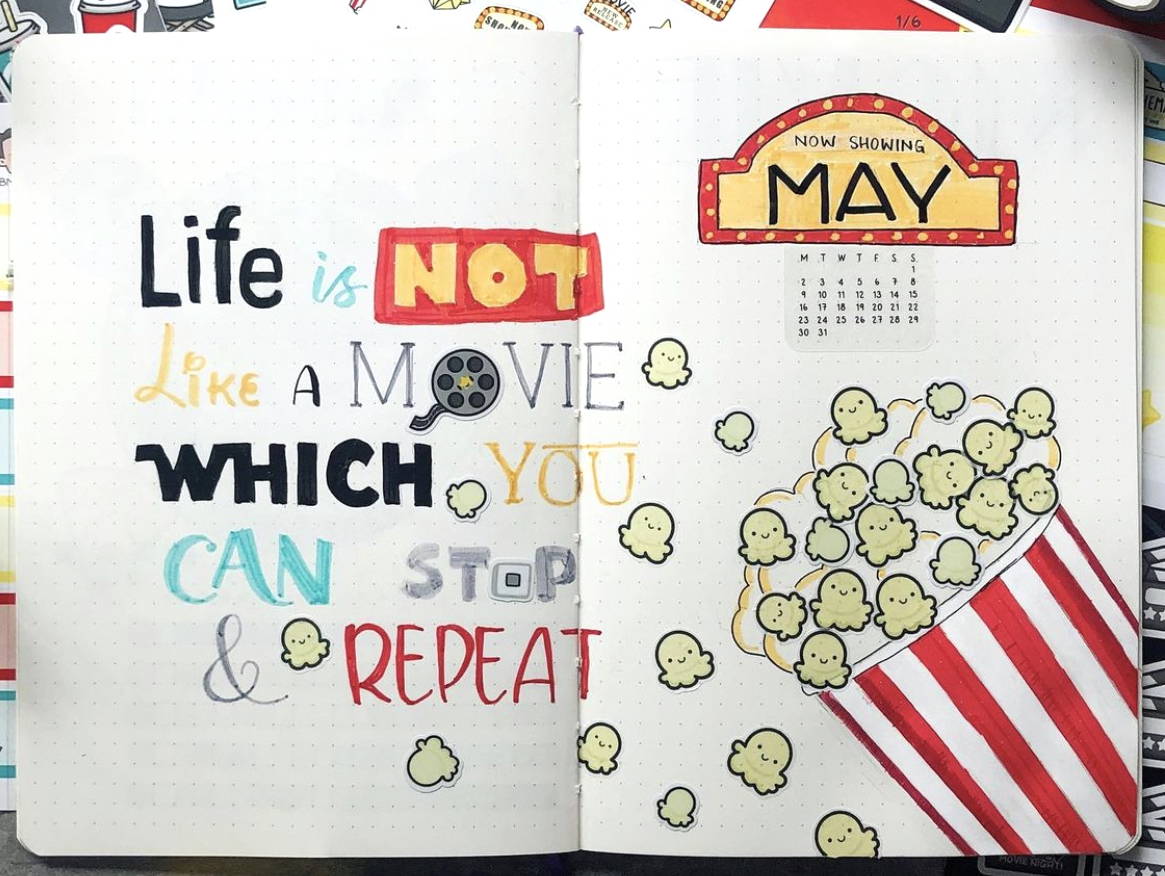 1/6
Life is NOT
Like A MOVIE
WHICH YOU
CAN STOP
& REPEAT
NOW SHOWING
MAY
M T W T F S S
1
2 3 4 5 6 7 8
9 10 11 12 13 14 15
16 17 18 19 20 21 22
23 24 25 26 27 28 29
30 31
MOVIE NIGHT!